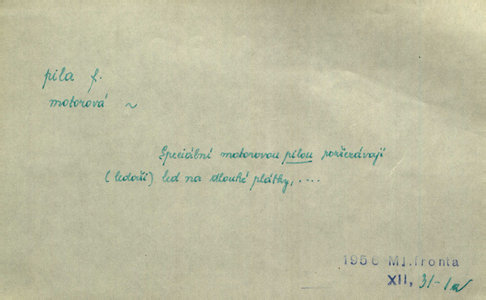 pila f.
motorová ~
Speciální motorovou pilou rozřezávají
(ledaři) led na dlouhé plátky, ....
1956 Ml.fronta
XII, 31-1